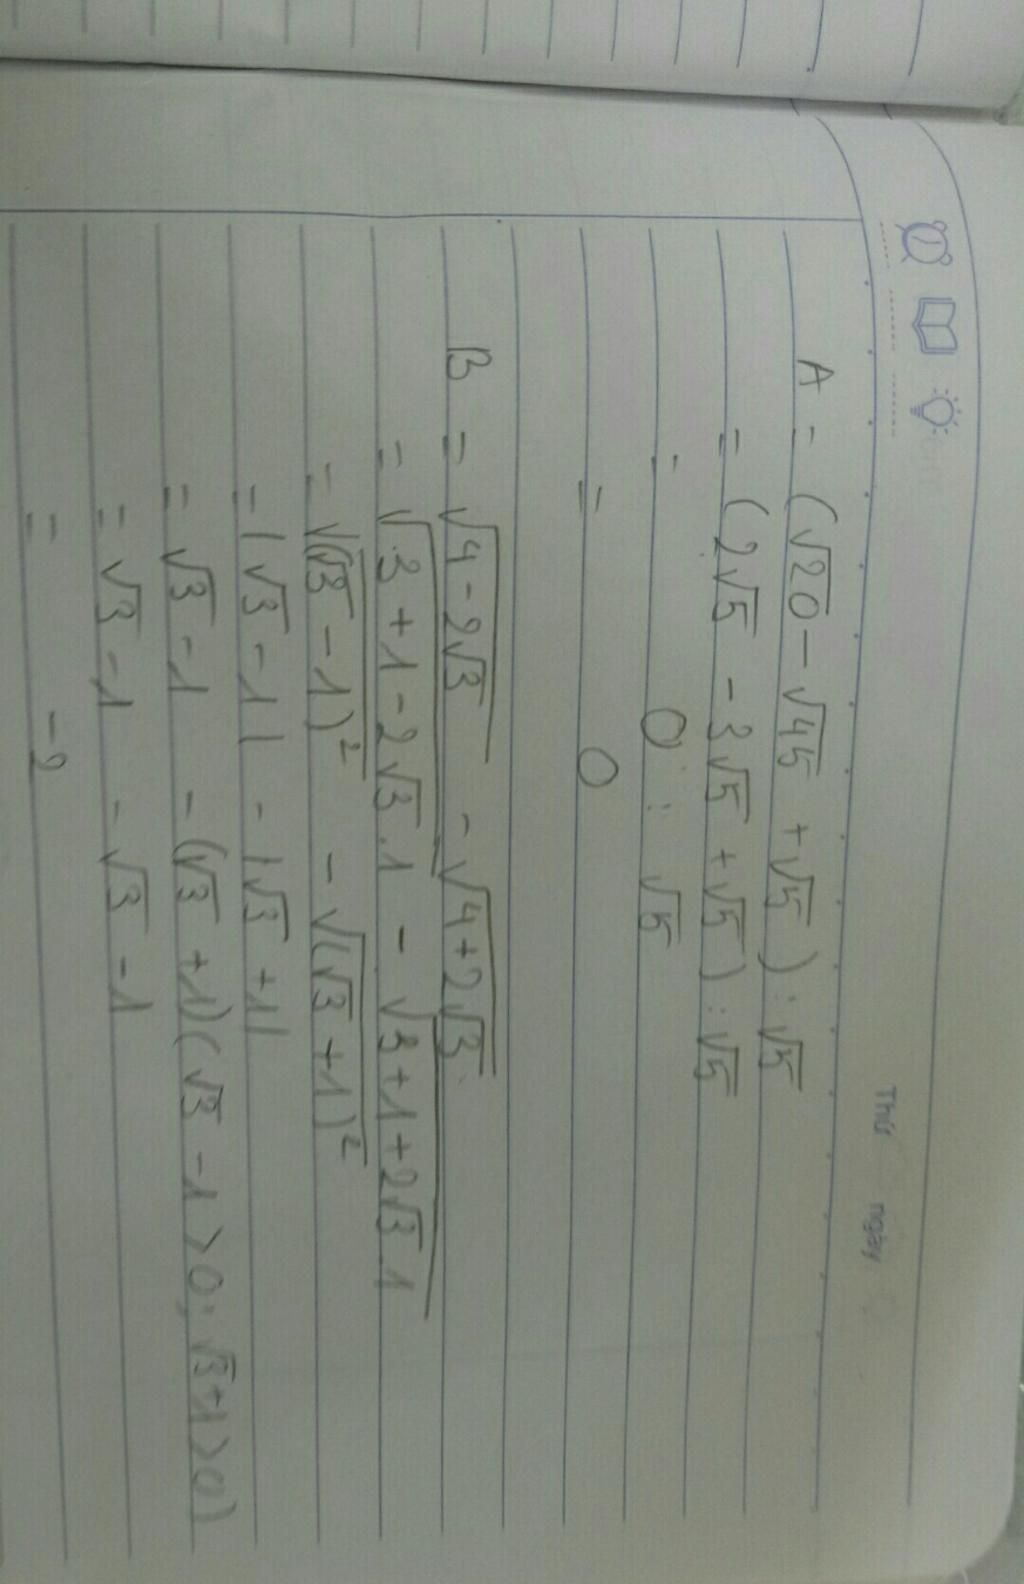 Thứ ngày
A = (√20 - √45 + √5) : √5
= (2√5 - 3√5 + √5) : √5
= 0 : √5
= 0
B = √4-2√3 - √4+2√3
= √3+1-2√3.1 - √3+1+2√3.1
= √(√3-1)² - √(√3+1)²
= |√3-1| - |√3+1|
= √3-1 - (√3+1) (√3-1>0; √3+1>0)
= √3-1 - √3-1
= -2